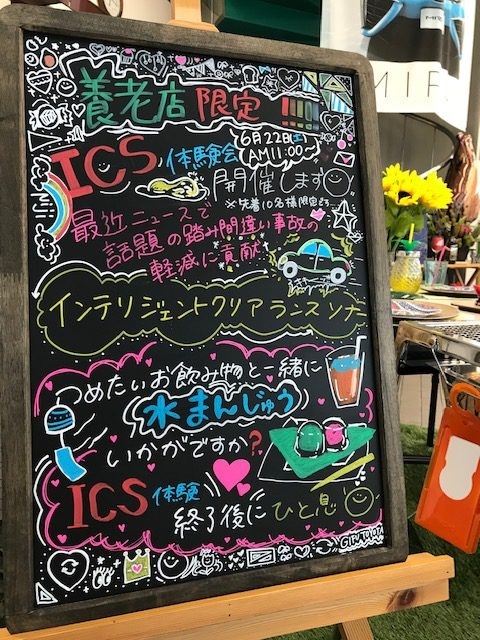 養老店 限定
ICS 体験会
6月22日(土)
AM11:00~
開催します
※先着10名様限定です
最近ニュースで
話題の踏み間違い事故の
軽減に貢献
インテリジェントクリアランスソナー
つめたいお飲み物と一緒に
水まんじゅう
いかがですか?
ICS 体験
終了後にひと息
GIFUTOYOTA
MIR